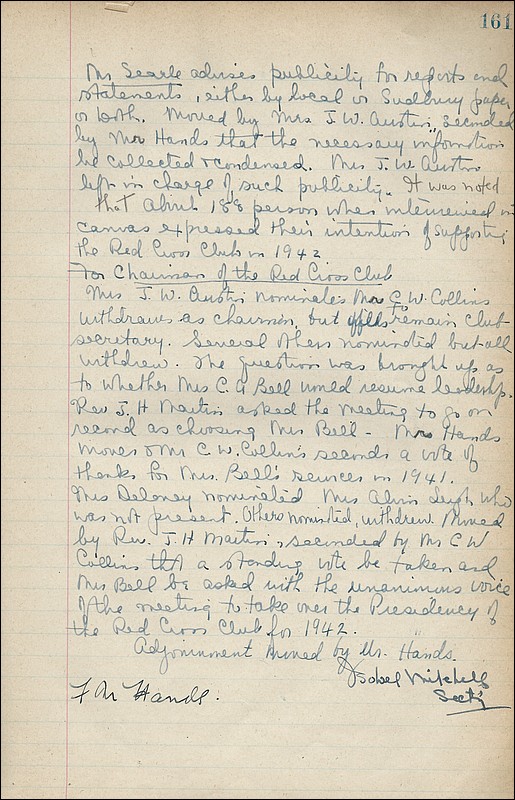 161
Mr. Searle advises publicity for reports and
statements, either by local or Sudbury paper
or both. Moved by Mrs J. W. Austin, seconded
by Mrs Hands that the necessary information
be collected & condensed. Mrs J. W. Austin
left in charge of such publicity. It was noted
that about 188 person when interviewed in
canvas expressed their intention of supporting
the Red Cross Club in 1942
For Chairman of the Red Cross Club
Mrs J. W. Austin nominates Mrs C. W. Collins
withdraws as chairman, but remain Club
secretary. Several others nominated but all
withdrew. The question was brought up as
to whether Mrs C. A Bell would resume leadership.
Rev J. H Martin asked the meeting to go on
record as choosing Mrs Bell - Mrs Hands
moves & Mr C. W. Collins seconds a vote of
thanks for Mrs. Bell's services in 1941.
Mrs Deloney nominated Mrs Alvin Leigh who
was not present. Others nominated, withdrew. Moved
by Rev. J. H Martin, seconded by Mr C W
Collins that a standing vote be taken and
Mrs Bell be asked with the unanimous voice
of the meeting to take over the Presidency of
the Red Cross Club for 1942.
Adjournment moved by Mr. Hands.
Isobel Mitchell
Sect'y
F M Hands.